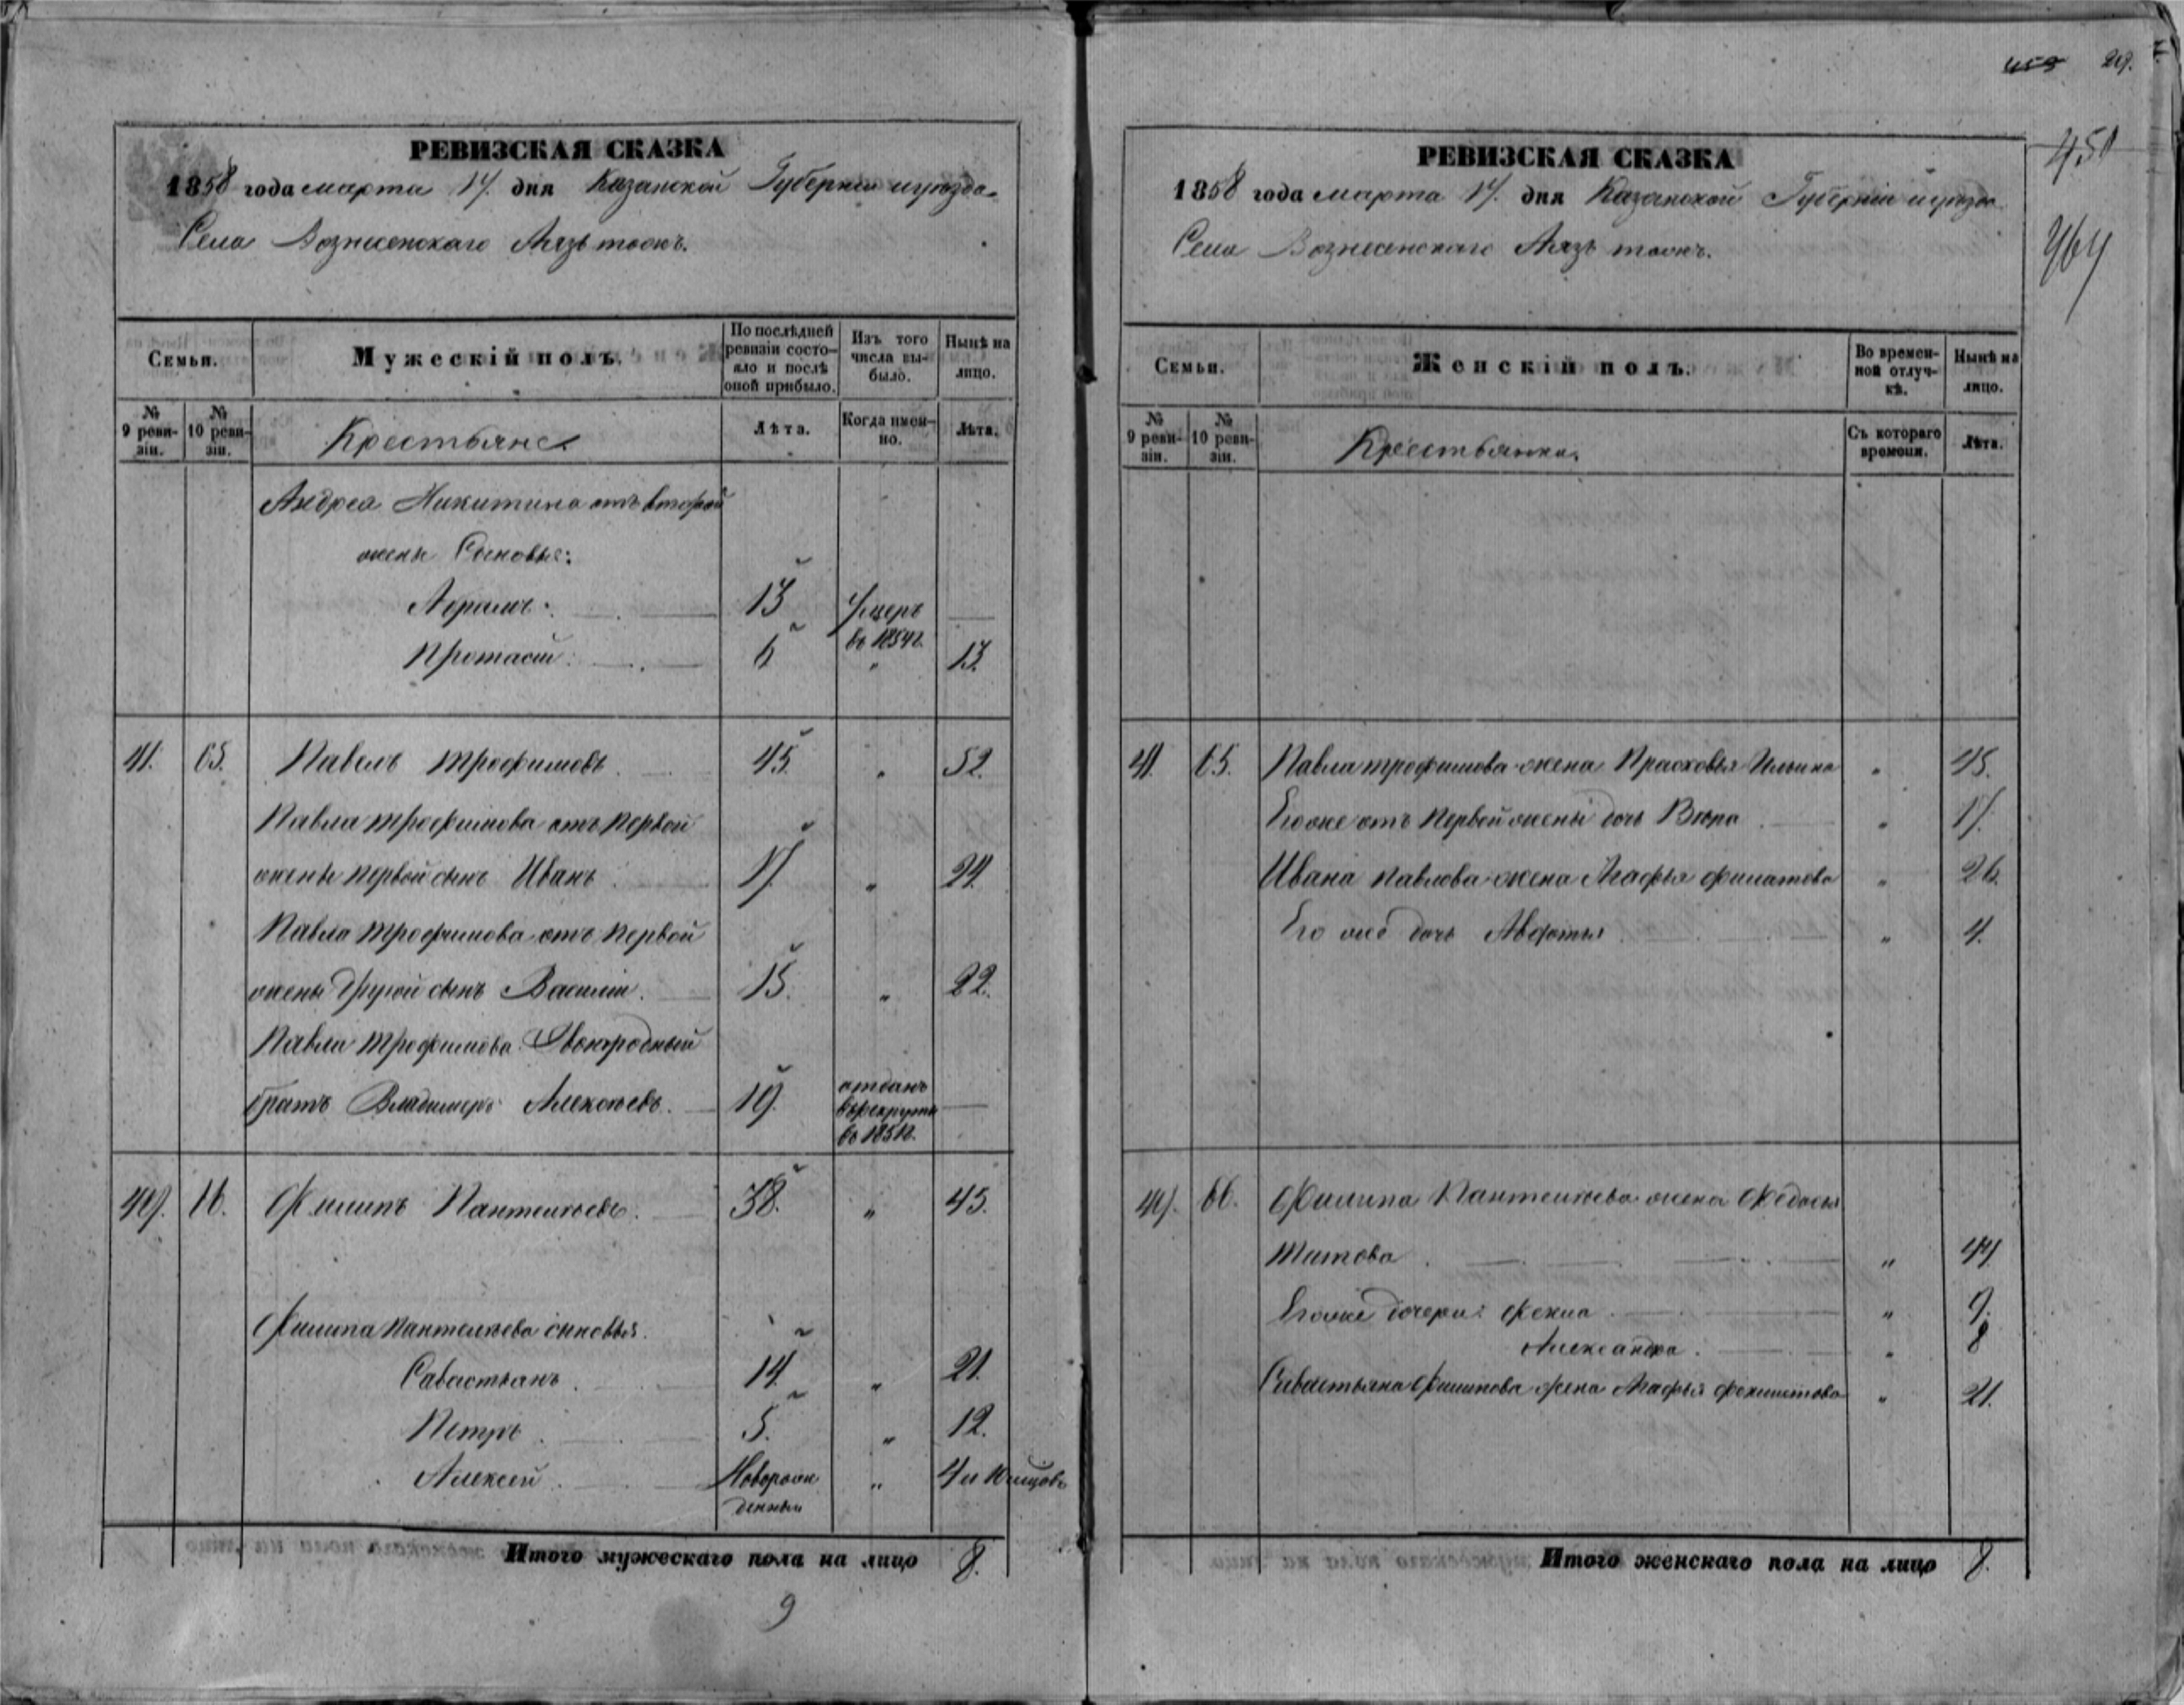 459 219.
451
464
РЕВИЗСКАЯ СКАЗКА
1858 года марта 17. дня Казанской Губерніи и уѣзда.
Села Вознесенскаго
Семьи.
Мужескій полъ.
По послѣдней ревизіи состояло и послѣ оной прибыло.
Изъ того числа выбыло.
Нынѣ на лицо.
№ 9 ревизіи.
№ 10 ревизіи.
Крестьяне
Лѣта.
Когда именно.
Лѣта.
Андрея Никитина отъ второй
жены Сыновья:
13 Умеръ
Протасій 6 въ 1854г. " 13.
41. 65. Павелъ Трофимовъ 45. " 52.
Павла Трофимова отъ первой
жены первой сынъ Иванъ 17. " 24.
Павла Трофимова отъ первой
жены другой сынъ Василій. 15. " 22.
Павла Трофимова Двоюродный
братъ Владимеръ Алексѣевъ. 19. отданъ
въ рекруты
въ 1851г.
Филипъ Пантелѣевъ. 38. " 45.
Филипа Пантелѣева сыновья.
Савастьянъ 14. " 21.
Петръ 5. " 12.
Алексей Новорож " 4 и
денный
Итого мужескаго пола на лицо 8.
9
РЕВИЗСКАЯ СКАЗКА
1858 года марта 17. дня Казанской Губерніи и уѣзда
Села Вознесенскаго
Семьи.
Женскій полъ.
Во временной отлучкѣ.
Нынѣ на лицо.
№ 9 ревизіи.
№ 10 ревизіи.
Крестьянки.
Съ котораго времени.
Лѣта.
41. 65. Павла Трофимова жена Прасковья Ильина " 45.
Его же отъ первой жены дочь " 17.
Ивана Павлова жена Агафья Филатова " 26.
Его же дочь Авдотья " 4.
66. Филипа Пантелѣева жена Федосья
Титова " 44.
Его же дочери: Фекла " 9.
Александра. " 8
Севастьяна Филипова жена Агафья " 21.
Итого женскаго пола на лицо 8.